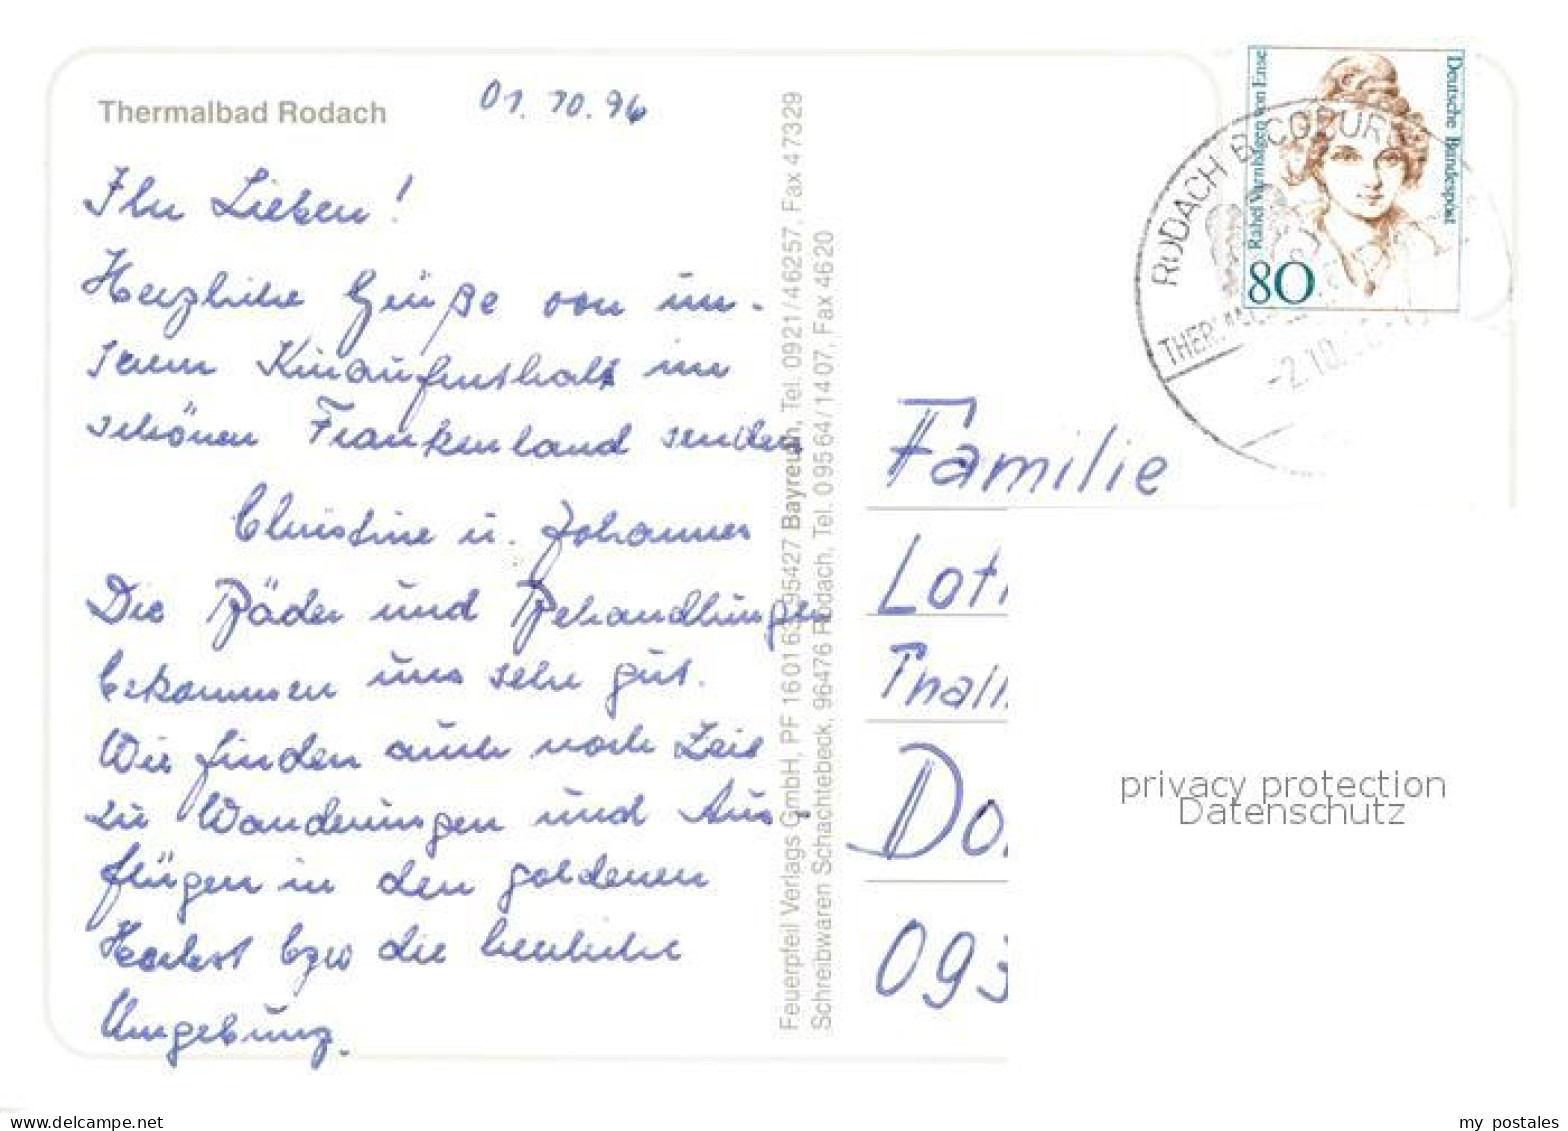 Thermalbad Rodach
01. 10. 96
Ihr Lieben!
Herzliche Grüße von un-
serem Kuraufenthalt im
schönen Frankenland senden
Christine u. Johannes
Die Bäder und Behandlungen
bekommen uns sehr gut.
Wir finden auch noch Zeit
zu Wanderungen und Aus-
flügen in den goldenen
Herbst bzw die herrliche
Umgebung.
Feuerpfeil Verlags GmbH, PF 160163, 95427 Bayreuth, Tel. 0921/46257, Fax 47329
Schreibwaren Schachtebeck, 96476 Rodach, Tel. 09564/1407, Fax 4620
Deutsche Bundespost
Rahel Varnhagen von Ense
80
RODACH B COBURG
-2.10.
Familie
Do
093
privacy protection
Datenschutz
www.delcampe.net
my_postales